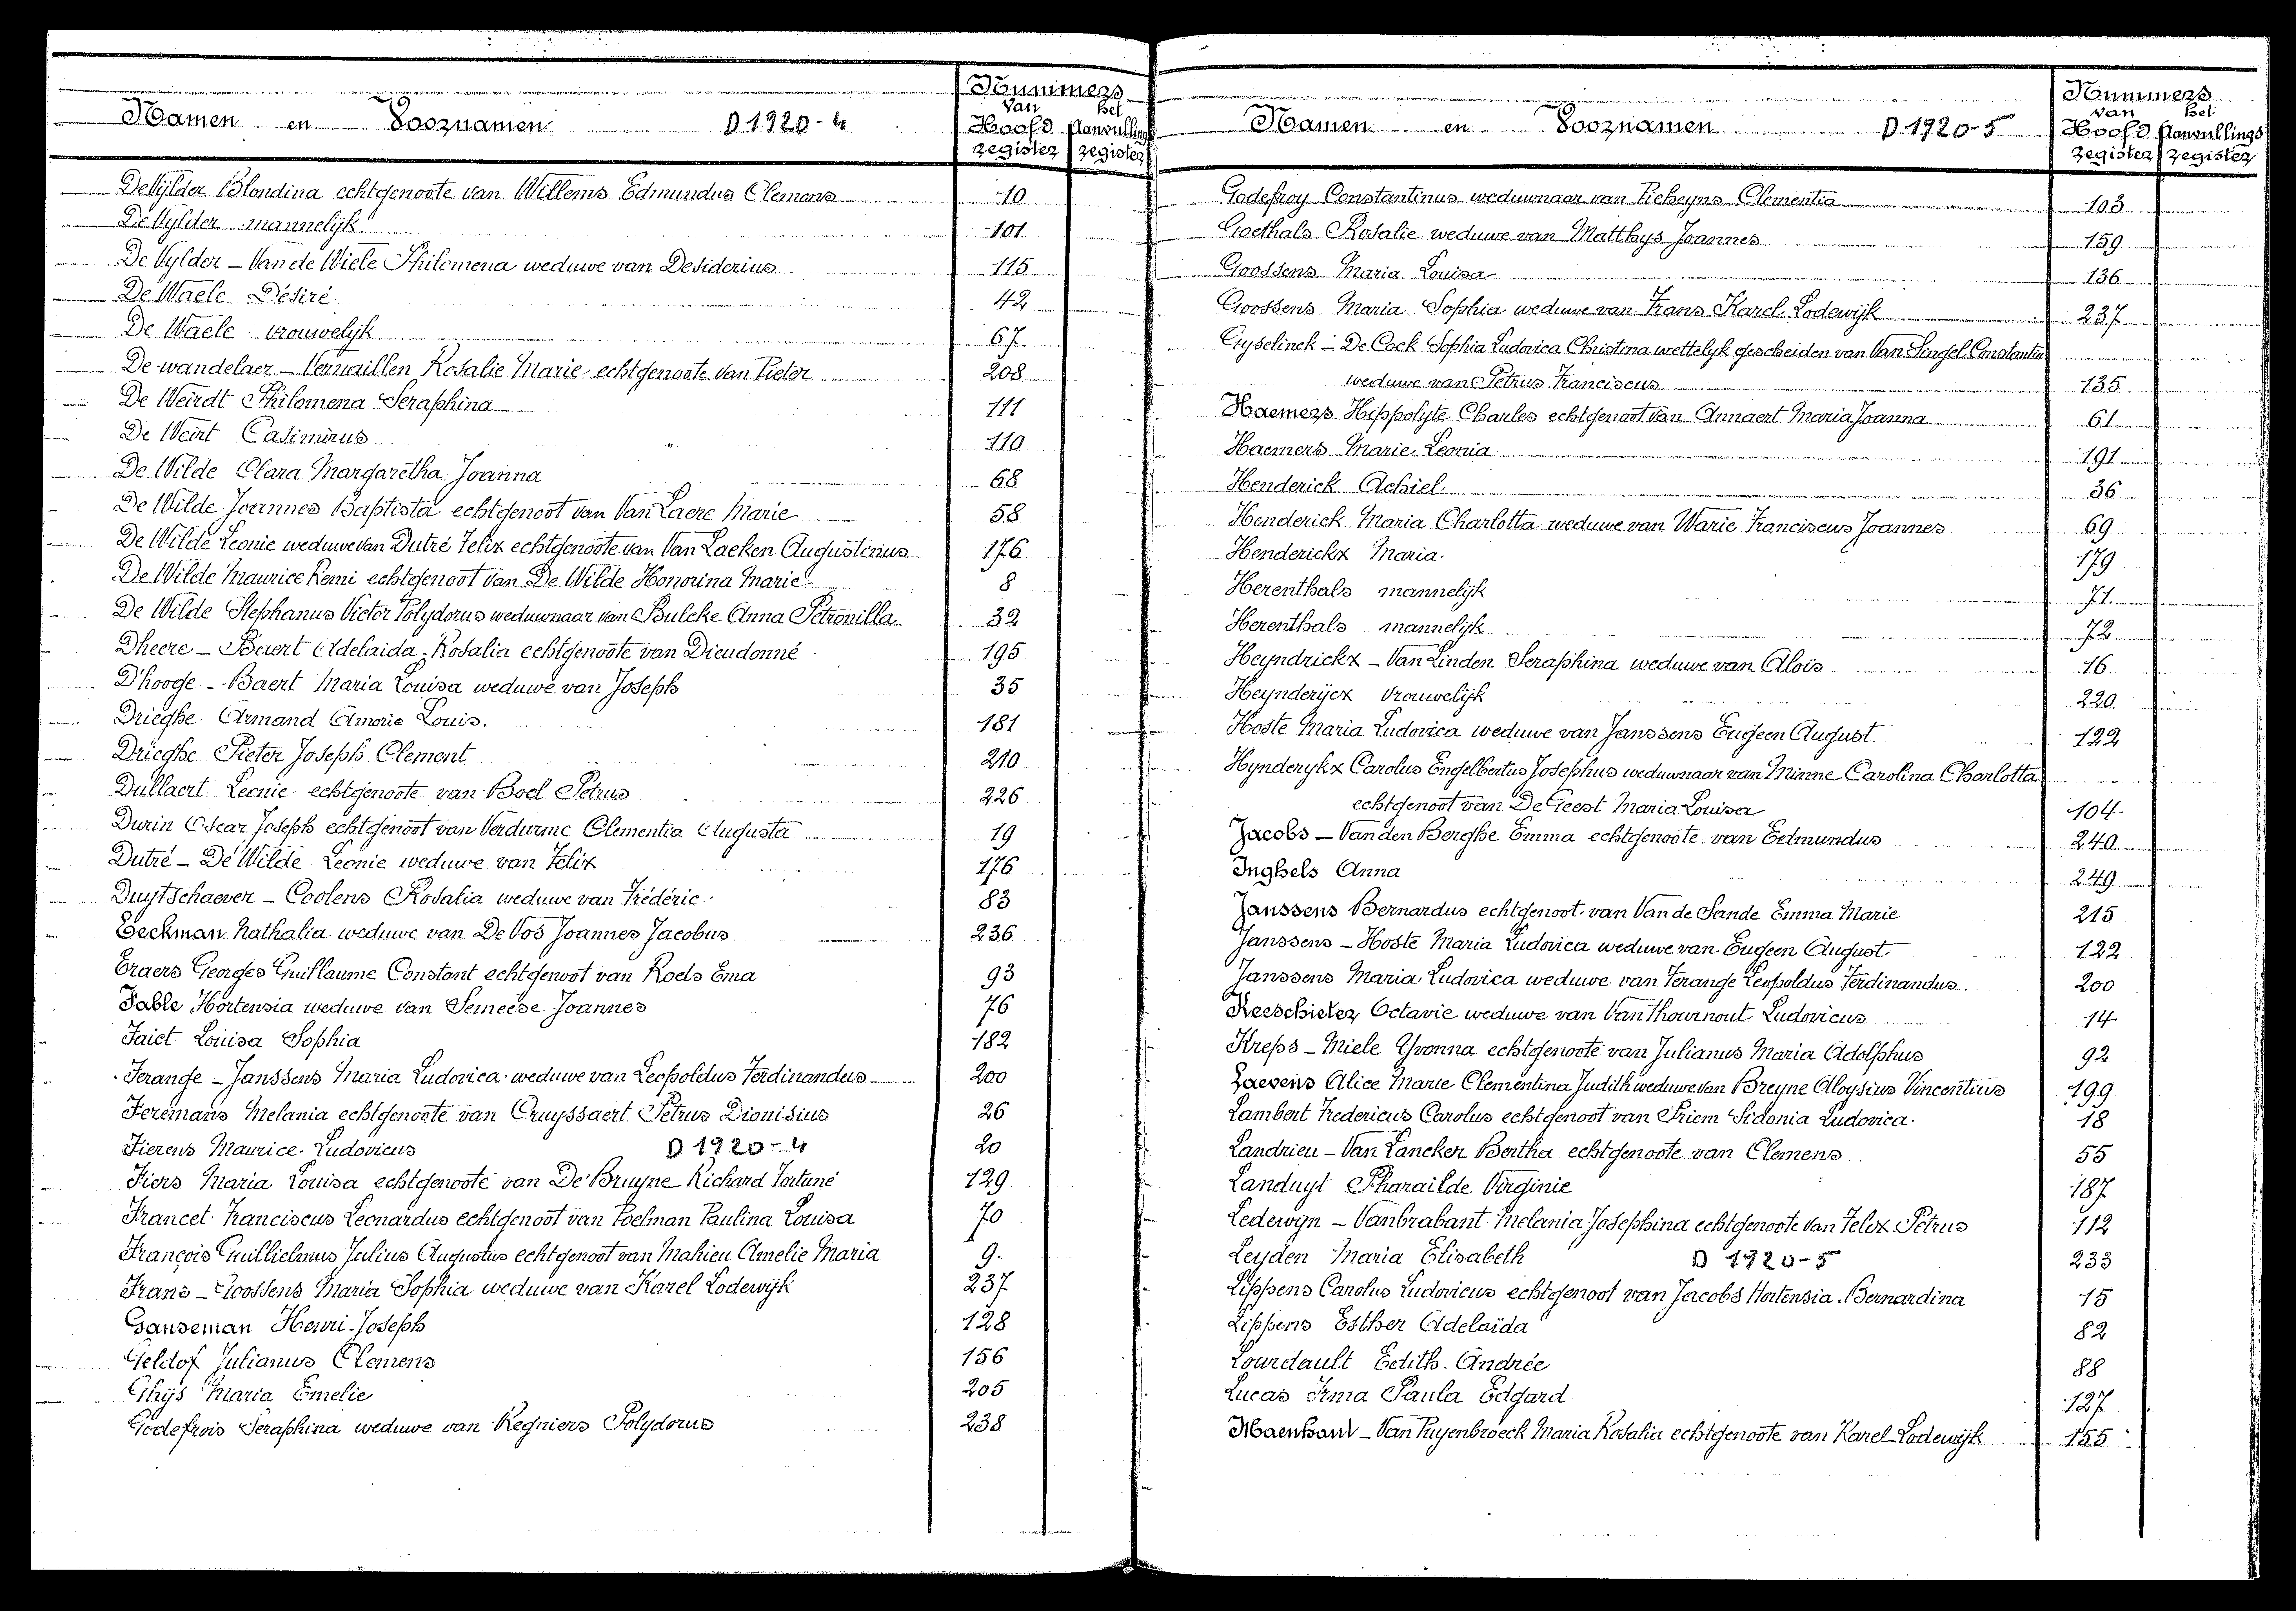 Namen en Voornamen D 1920-4
Nummers
van het
Hoofd Aanvullings
register register
De Vylder Blondina echtgenoote van Willems Edmundus Clemens 10
De Vylder mannelijk 101
De Vylder - Van de Wiele Philomena weduwe van Desiderius 115
De Waele Désiré 42
De Waele vrouwelijk 67
De wandelaer - Vervaillen Rosalie Marie echtgenoote van Pieter 208
De Weirdt Philomena Seraphina 111
De Weirt Casimirus 110
De Wilde Clara Margaretha Joanna 68
De Wilde Joannes Baptista echtgenoot van Van Laere Marie 58
De Wilde Leonie weduwe van Dutré Felix echtgenoote van Van Laeken Augustinus 176
De Wilde Maurice Remi echtgenoot van De Wilde Honorina Marie 8
De Wilde Stephanus Victor Polydorus weduwnaar van Bulcke Anna Petronilla 32
Dheere - Baert Adelaida Rosalia echtgenoote van Dieudonné 195
D'hooge - Baert Maria Louisa weduwe van Joseph 35
Drieghe Armand Amorie Louis. 181
Drieghe Pieter Joseph Clement 210
Dullaert Leonie echtgenoote van Boel Petrus 226
Durin Oscar Joseph echtgenoot van Verdurme Clementia Augusta 19
Dutré - De Wilde Leonie weduwe van Felix 176
Duytschaever - Coolens Rosalia weduwe van Frédéric 83
Eeckman Nathalia weduwe van De Vos Joannes Jacobus 236
Eraers Georges Guillaume Constant echtgenoot van Roels Ema 93
Fable Hortensia weduwe van Semeese Joannes 76
Faict Louisa Sophia 182
Ferange - Janssens Maria Ludovica weduwe van Leopoldus Ferdinandus 200
Feremans Melania echtgenoote van Cruyssaert Petrus Dionisius 26
Fierens Maurice Ludovicus D 1920-4 20
Fiers Maria Louisa echtgenoote van De Bruyne Richard Fortuné 129
Francet Franciscus Leonardus echtgenoot van Poelman Paulina Louisa 70
François Guillielmus Julius Augustus echtgenoot van Mahieu Amelie Maria 9
Frans - Goossens Maria Sophia weduwe van Karel Lodewijk 237
Ganseman Henri Joseph 128
Geldof Julianus Clemens 156
Ghijs Maria Emelie 205
Godefrois Seraphina weduwe van Regniers Polydorus 238
Namen en Voornamen D 1920-5
Nummers
van het
Hoofd Aanvullings
register register
Godefroy Constantinus weduwnaar van Pieheyns Clementia 103
Goethals Rosalie weduwe van Matthys Joannes 159
Goossens Maria Louisa 136
Goossens Maria Sophia weduwe van Frans Karel Lodewijk 237
Gyselinck - De Cock Sophia Ludovica Christina wettelyk gescheiden van Van Singel Constantin
weduwe van Petrus Franciscus 135
Haemers Hippolyte Charles echtgenoot van Annaert Maria Joanna 61
Haemers Marie Leonia 191
Henderick Achiel. 36
Henderick Maria Charlotta weduwe van Warie Franciscus Joannes 69
Henderickx Maria 179
Herenthals mannelijk 71
Herenthals mannelijk 72
Heyndrickx - Van Linden Seraphina weduwe van Alois 16
Heynderijcx vrouwelijk 220
Hoste Maria Ludovica weduwe van Janssens Eugeen August 122
Hynderykx Carolus Engelbertus Josephus weduwnaar van Minne Carolina Charlotta
echtgenoot van De Geest Maria Louisa 104
Jacobs - Van den Berghe Emma echtgenoote van Edmundus 240
Inghels Anna 249
Janssens Bernardus echtgenoot van Van de Sande Emma Marie 215
Janssens - Hoste Maria Ludovica weduwe van Eugeen August 122
Janssens Maria Ludovica weduwe van Ferange Leopoldus Ferdinandus 200
Keeschieter Octavie weduwe van Van Thournout Ludovicus 14
Kreps - Miele Yvonna echtgenoote van Julianus Maria Adolphus 92
Laevens Alice Marie Clementina Judith weduwe van Breyne Aloysius Vincentius 199
Lambert Fredericus Carolus echtgenoot van Priem Sidonia Ludovica 18
Landrieu - Van Lancker Bertha echtgenoote van Clemens 55
Landuyt Pharailde Virginie 187
Ledewyn - Vanbrabant Melania Josephina echtgenoote van Felix Petrus 112
Leyden Maria Elisabeth D 1920-5 233
Lippens Carolus Ludovicus echtgenoot van Jacobs Hortensia Bernardina 15
Lippens Esther Adelaïda 82
Lourdault Edith Andrée 88
Lucas Irma Paula Edgard 127
Maenhaut - Van Puyenbroeck Maria Rosalia echtgenoote van Karel Lodewijk 155